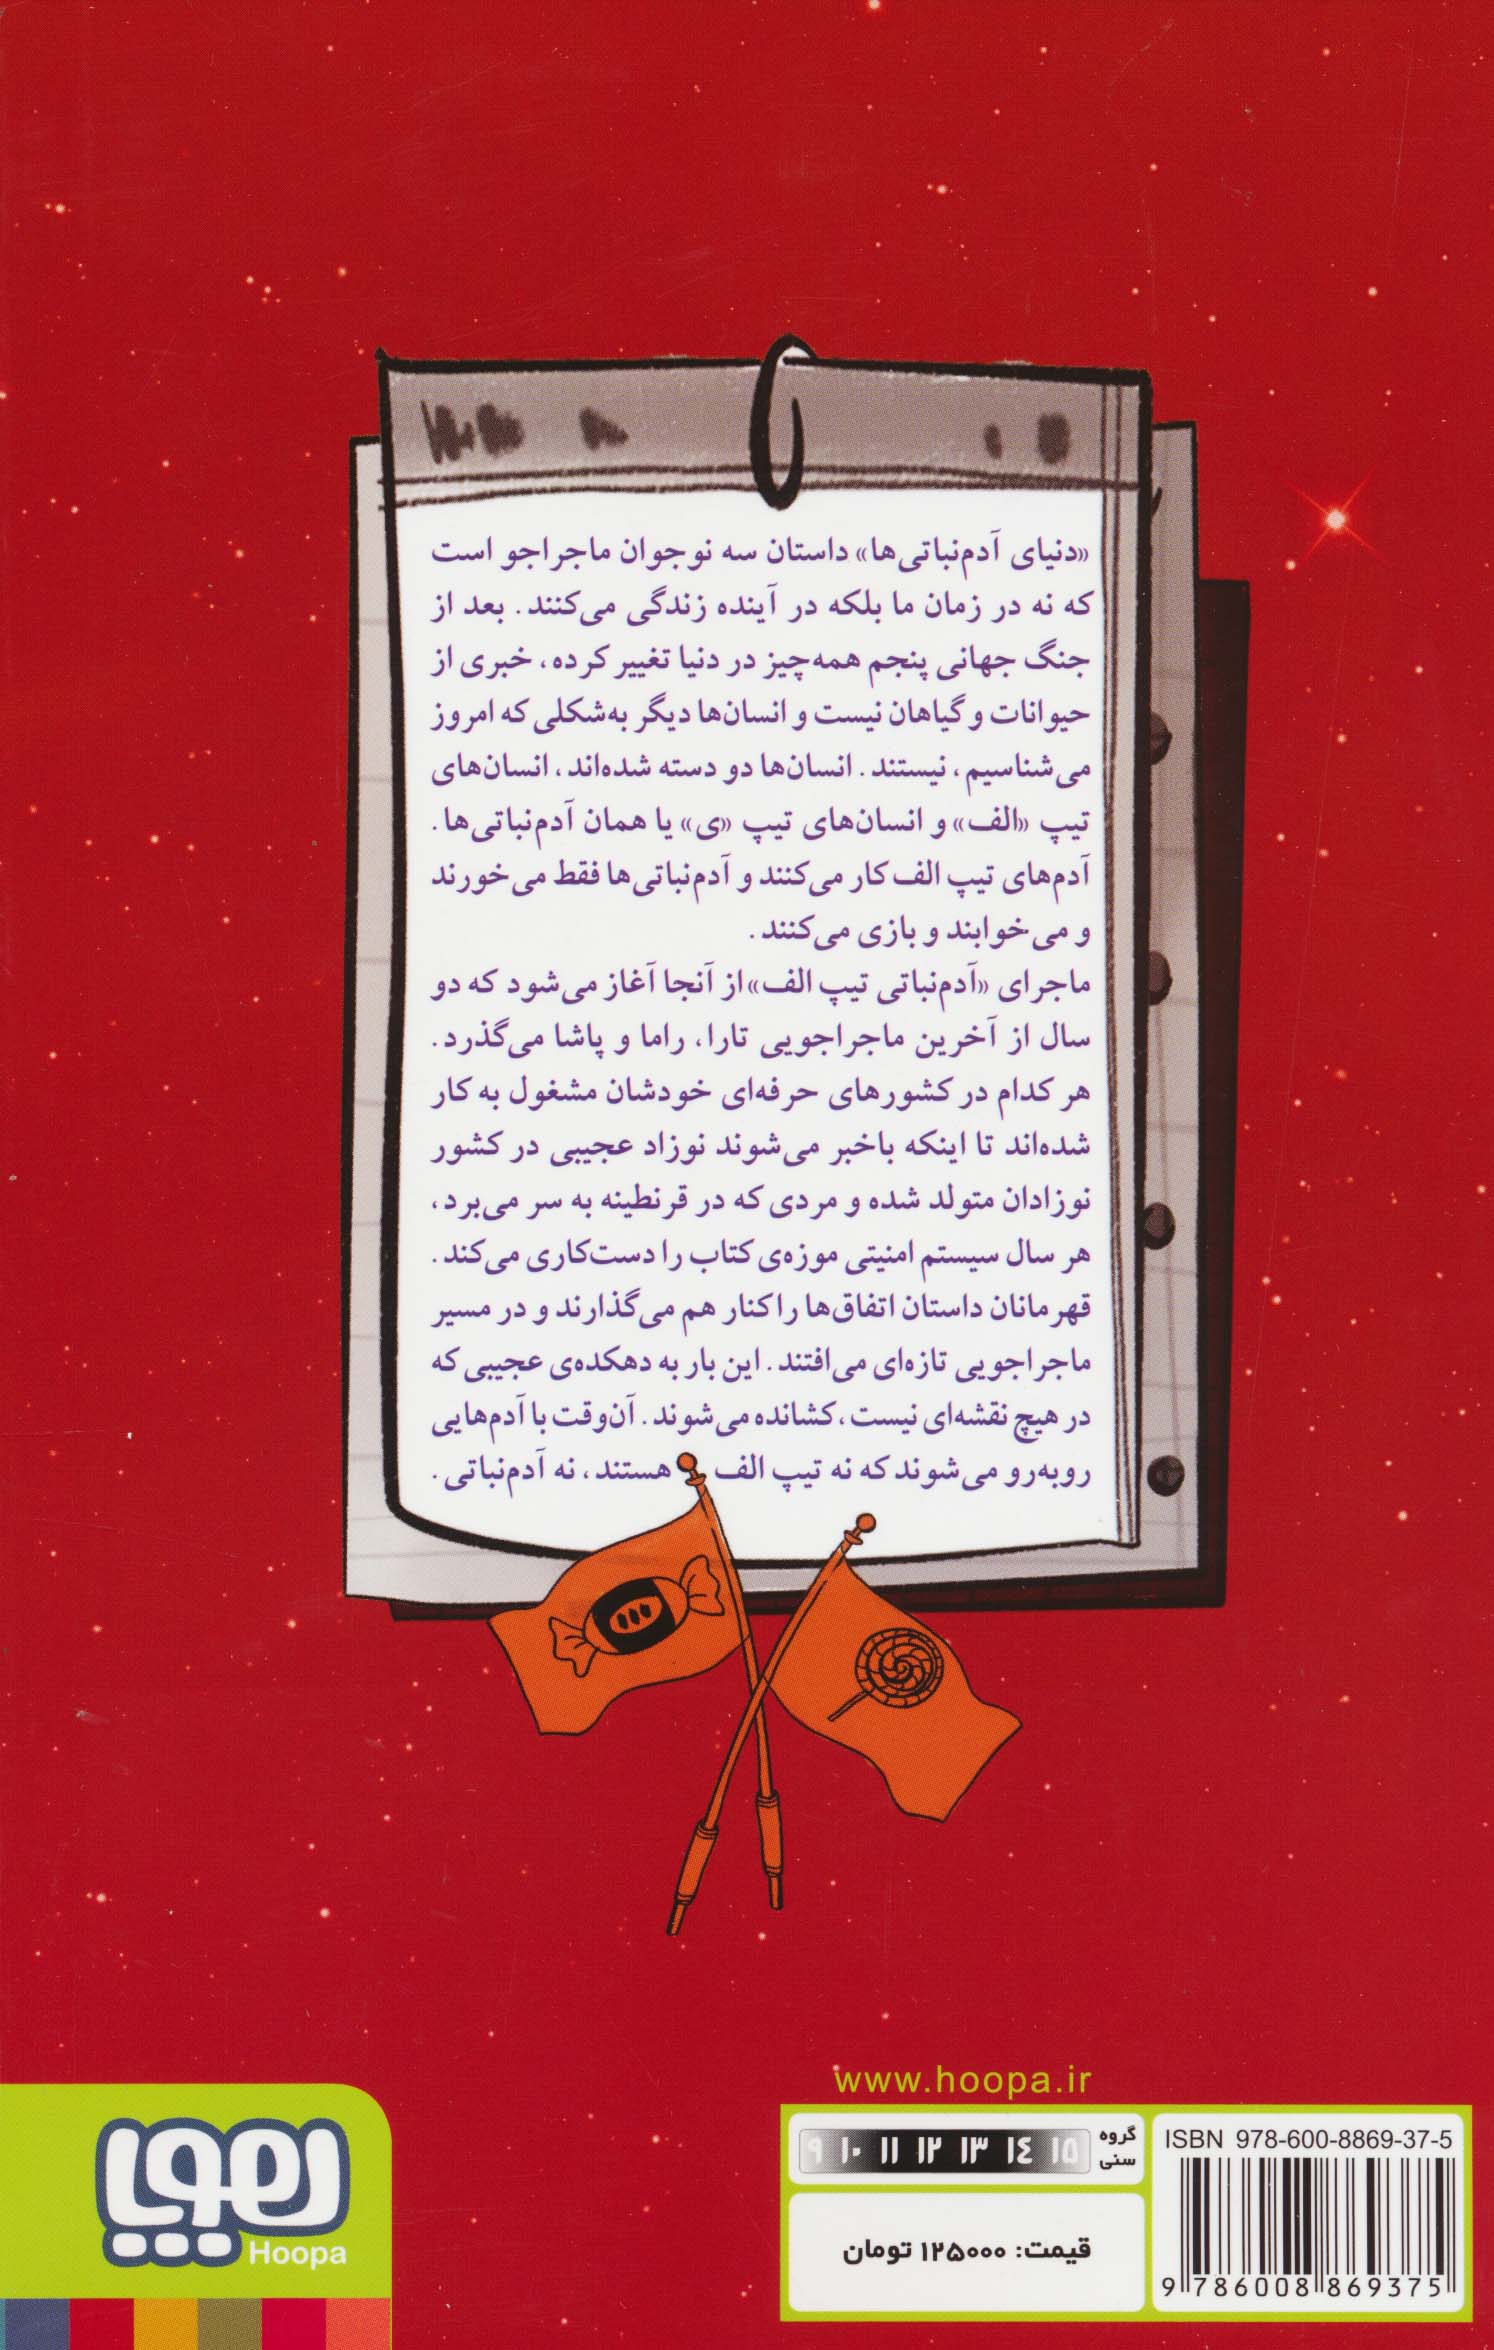 «دنیای آدم‌نباتی‌ها» داستان سه نوجوان ماجراجو است
که نه در زمان ما بلکه در آینده زندگی می‌کنند. بعد از
جنگ جهانی پنجم همه‌چیز در دنیا تغییر کرده، خبری از
حیوانات و گیاهان نیست و انسان‌ها دیگر به‌شکلی که امروز
می‌شناسیم، نیستند. انسان‌ها دو دسته شده‌اند، انسان‌های
تیپ «الف» و انسان‌های تیپ «ی» یا همان آدم‌نباتی‌ها.
آدم‌های تیپ الف کار می‌کنند و آدم‌نباتی‌ها فقط می‌خورند
و می‌خوابند و بازی می‌کنند.
ماجرای «آدم‌نباتی تیپ الف» از آنجا آغاز می‌شود که دو
سال از آخرین ماجراجویی تارا، راما و پاشا می‌گذرد.
هر کدام در کشورهای حرفه‌ای خودشان مشغول به کار
شده‌اند تا اینکه باخبر می‌شوند نوزاد عجیبی در کشور
نوزادان متولد شده و مردی که در قرنطینه به سر می‌برد،
هر سال سیستم امنیتی موزه‌ی کتاب را دست‌کاری می‌کند.
قهرمانان داستان اتفاق‌ها را کنار هم می‌گذارند و در مسیر
ماجراجویی تازه‌ای می‌افتند. این بار به دهکده‌ی عجیبی که
در هیچ نقشه‌ای نیست، کشانده می‌شوند. آن‌وقت با آدم‌هایی
روبه‌رو می‌شوند که نه تیپ الف هستند، نه آدم‌نباتی.
www.hoopa.ir
گروه سنی
۹ ۱۰ ۱۱ ۱۲ ۱۳ ۱۴ ۱۵
قیمت: ۱۲۵۰۰۰ تومان
ISBN 978-600-8869-37-5
9 786008 869375
هوپا
Hoopa